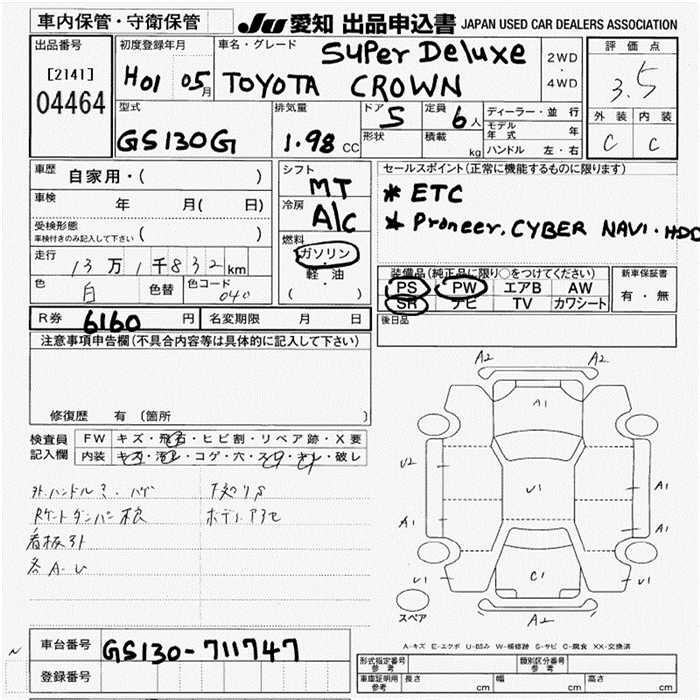 車内保管・守衛保管 JU 愛知 出品申込書 JAPAN USED CAR DEALERS ASSOCIATION
出品番号 初度登録年月 車名・グレード Super Deluxe 2WD・4WD 評価点
[2141] H01 05月 TOYOTA CROWN 3.5
04464
型式 排気量 ドア 5 定員 6人 ディーラー・並行 外装 内装
GS130G 1.98 CC 形状 積載 kg モデル年式 年 C C
ハンドル 左・右
車歴 自家用・( ) シフト MT セールスポイント(正常に機能するものに限ります)
車検 年 月( 日) 冷房 A/C * ETC
受検形態 車検付きのみ記入して下さい ( ) 燃料 * Proneer. CYBER NAVI・HDD
走行 13万1千832km ガソリン・軽・油 ( )
色 白 色替 色コード 040
装備品(純正品に限り○をつけてください) 新車保証書
PS PW エアB AW 有・無
SR ナビ TV カワシート
R券 6160 円 名変期限 月 日 後日品
注意事項申告欄(不具合内容等は具体的に記入して下さい)
修復歴 有 (箇所 )
検査員記入欄 FW キズ・飛石・ヒビ割・リペア跡・X要
内装 キズ・汚レ・コゲ・穴・スレ・オレ・破レ
外ハンドル
看板外
各A・U
A2 A2
A1
U2 U1 A1
A1 A1
U1 C1 U1
スペア A2
A-キズ E-エクボ U-凹み W-補修跡 S-サビ C-腐食 XX-交換済
車台番号 GS130-711747
登録番号
形式指定番号 参考 類別区分番号 参考
車庫証明用 参考 長さ cm 幅 cm 高さ cm